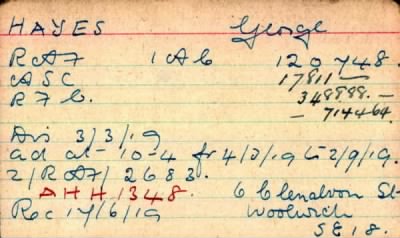 HAYES George
RAF 1 Ab 129748.
ASC 17811 —
R F C. 348888. —
— 714464.
Dis 3/3/19
ad at 10-4 fr 4/3/19 to 2/9/19.
2/RAF/2683.
AHH1348. 6 Clenalvon St
Rec 17/6/19 Woolwich
SE18.